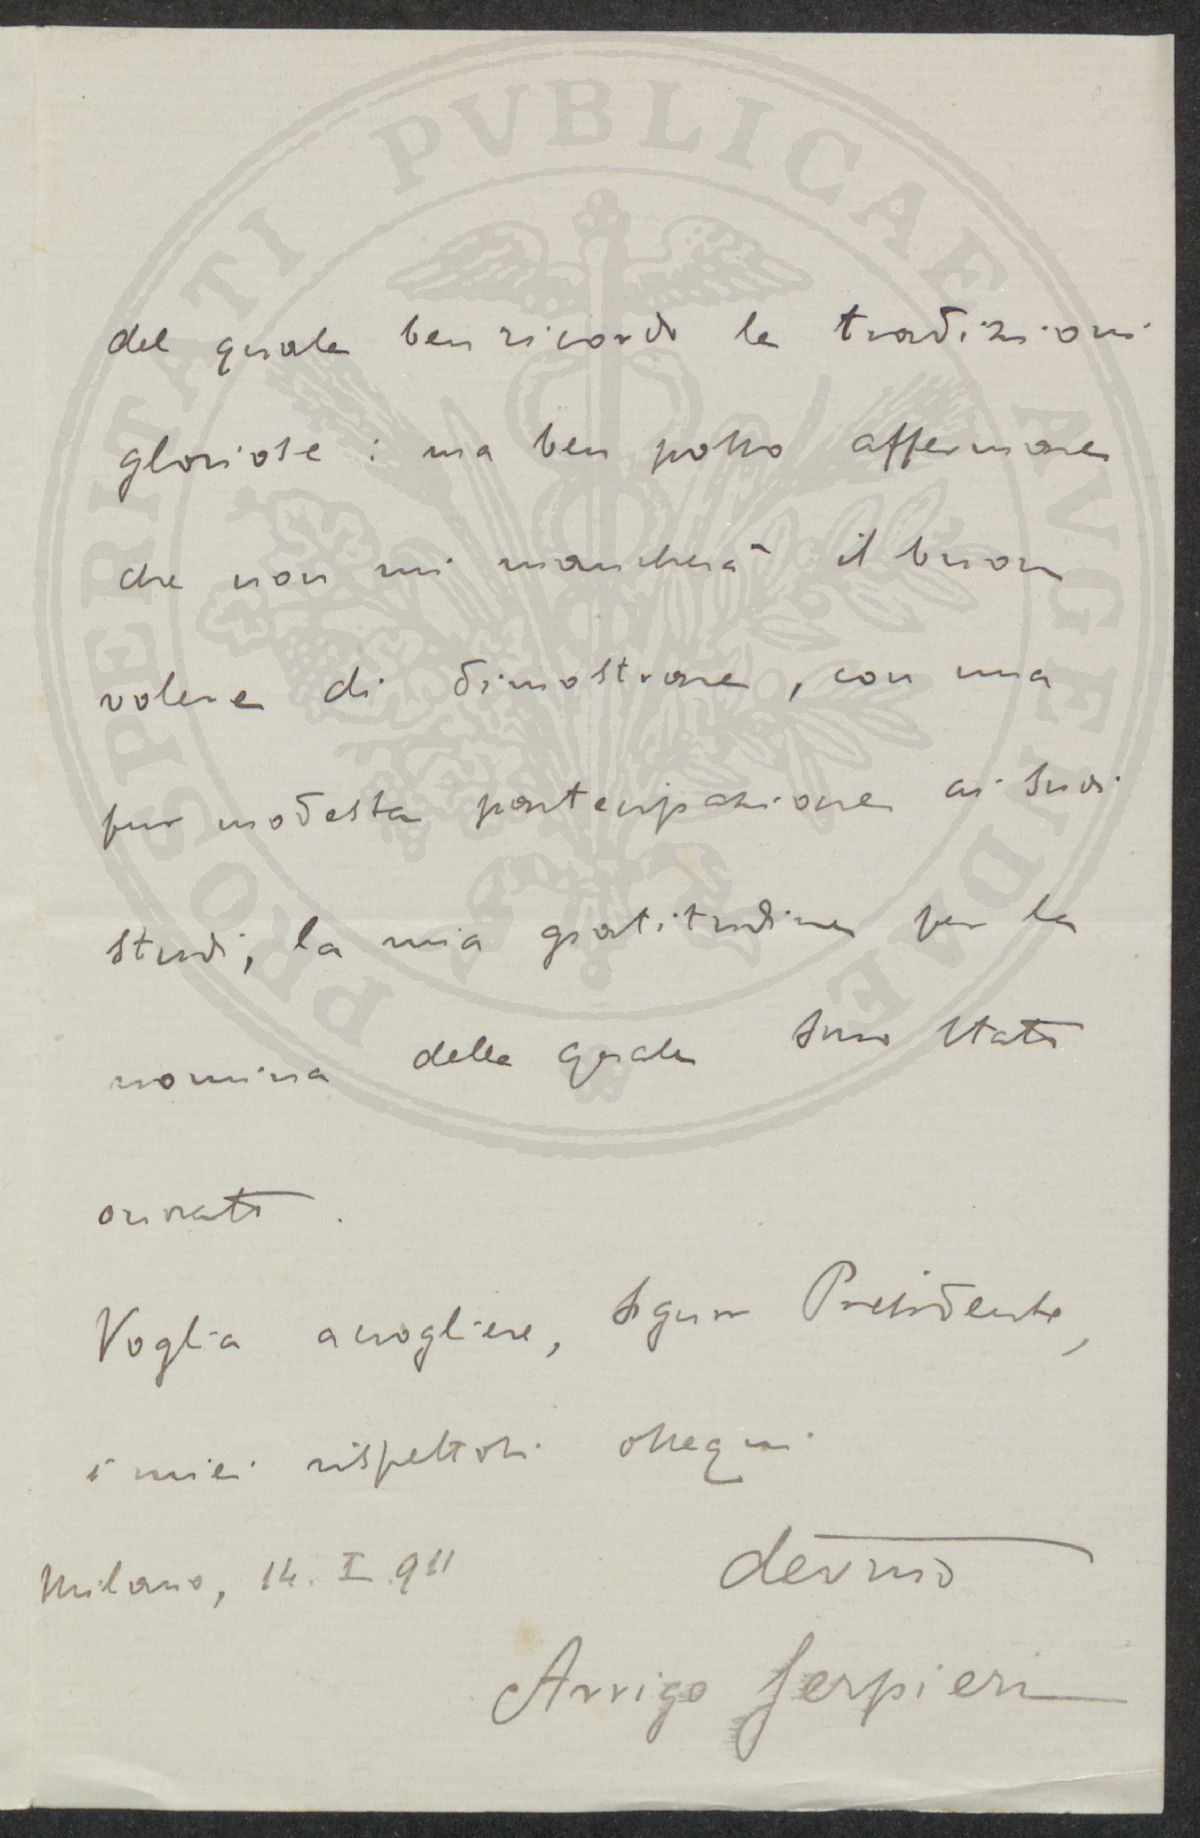 PROSPERITATI PVBLICAE AVGENDAE
del quale ben ricordo le tradizioni
gloriose : ma ben posso affermare
che non mi mancherà il buon
volere di dimostrare, con una
pur modesta partecipazione ai suoi
studi, la mia gratitudine per la
nomina della quale sono stato
onorato.
Voglia accogliere, Signor Presidente,
i miei rispettosi ossequi
Milano, 14. I. 911
devmo
Arrigo Serpieri